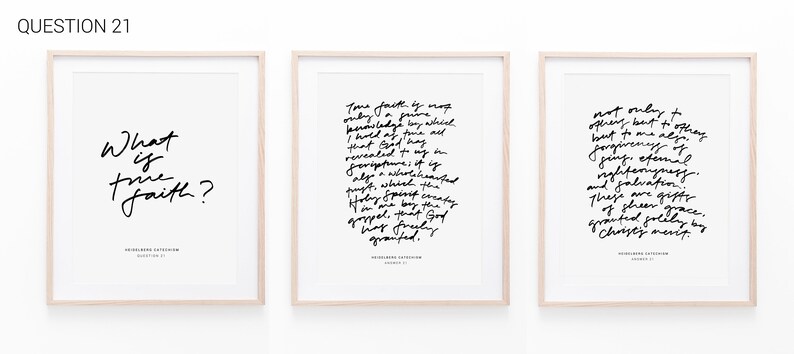 QUESTION 21
What
is
true
faith?
HEIDELBERG CATECHISM
QUESTION 21
True faith is not
only a sure
knowledge by which
I hold as true all
that God has
revealed to us in
scripture; it is
also a wholehearted
trust, which the
Holy Spirit creates
in me by the
gospel, that God
has freely
granted,
HEIDELBERG CATECHISM
ANSWER 21
not only to
others but to others
but to me also,
forgiveness of
sins, eternal
righteousness,
and salvation.
These are gifts
of sheer grace,
granted solely by
Christ's merit.
HEIDELBERG CATECHISM
ANSWER 21